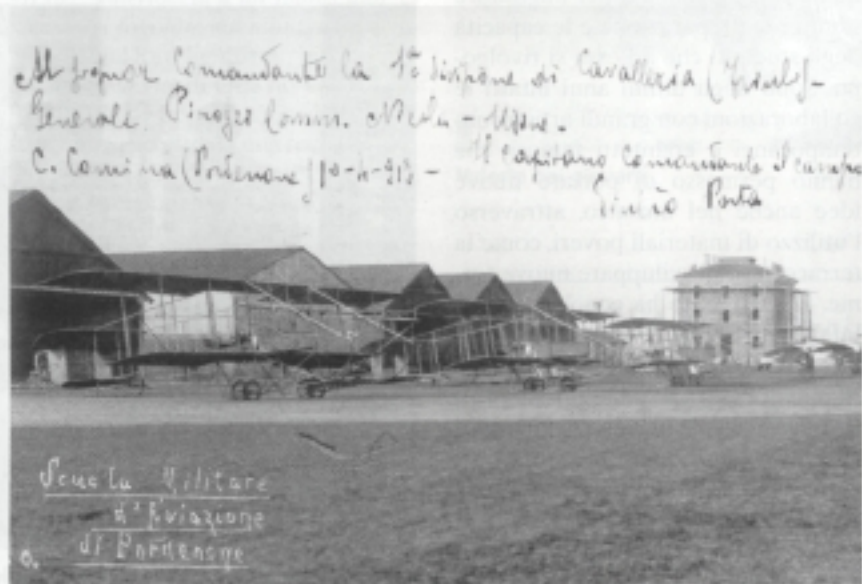 Al signor Comandante la 1ª divisione di Cavalleria (Friuli)-
Generale Pirozzi Comm. Nicola - Udine.
C. Comina (Pordenone) 10-4-913 - Il capitano comandante il campo
Porta
Scuola Militare
d'Aviazione
di Pordenone